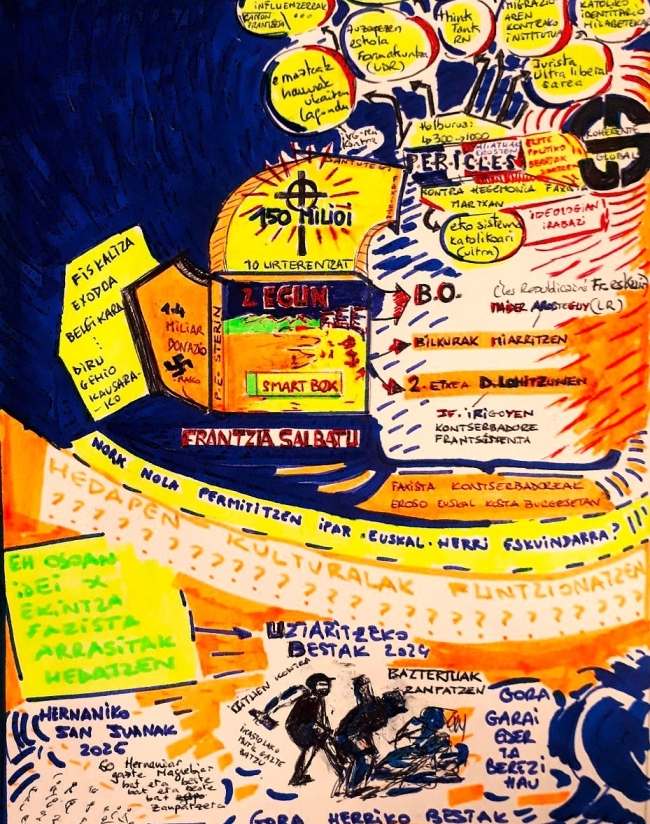 INFLUENZERRAK
RAMON
FRANTZIA
...
AUZAPEZEN
eskola
Formakuntza
(UDR)
think
Tank
RN
MIGRAZIO
AREN
KONTRAKO
INSTITUTUA
KATOLIKO
IDENTITARIO
emazteak
haurrak
ukaiten
lagundu
Jurista
Ultra liberal
sarea
IVG-ren
kontra
Helburua:
300 → 1000
PERICLES
ELITE
POLITIKO
BERRIAK
KOHERENTE
GLOBAL
KONTRA HEGEMONIA FAXISTA
MARTXAN
IDEOLOGIAN
IRABAZI
eko sistema
katolikoari
(ultra)
150 MILIOI
10 URTERENTZAT
FISKALTZA
EXODOA
BELGIKARA
DIRU
GEHIO
KAUSARA-
-KO
1.4
MILIAR
DONAZIO
-RAKO
P.E- STERIN
2 EGUN
FEE
SMART BOX
B.O.
(Les Republicains
MAIDER AROSTEGUY (LR)
BILKURAK MIARRITZEN
2. ETXEA D. LOHITZUNEN
JF. IRIGOYEN
KONTSERBADORE
FRANTSISTENTA
FRANTZIA SALBATU
FAXISTA KONTSERBADOREAK
EROSO EUSKAL KOSTA BURGESETAN
NORK NOLA PERMITITZEN IPAR-EUSKAL-HERRI ESKUINDARRA?
HEDAPEN KULTURALAK FUNTZIONATZEN
? ? ? ? ? ? ? ? ? ? ? ? ? ? ? ?
EH OSOAN
IDEI X
EKINTZA
FAZISTA
ARRASITAK
HEDATZEN
UZTARITZEKO
BESTAK 2024
KONTRA
IKASTOLAKO
MUTIL GAZTE
BATZU
BAZTERTUAK
ZANPATZEN
GORA
GARAI
EDER
TA
BEREZI
HAU
HERNANIKO
SAN JUANAK
2025
60 Hernaniar
gazte Magrebiar
bat eta beste
bat eta beste
bat
zanpatzera
GORA HERRIKO BESTAK